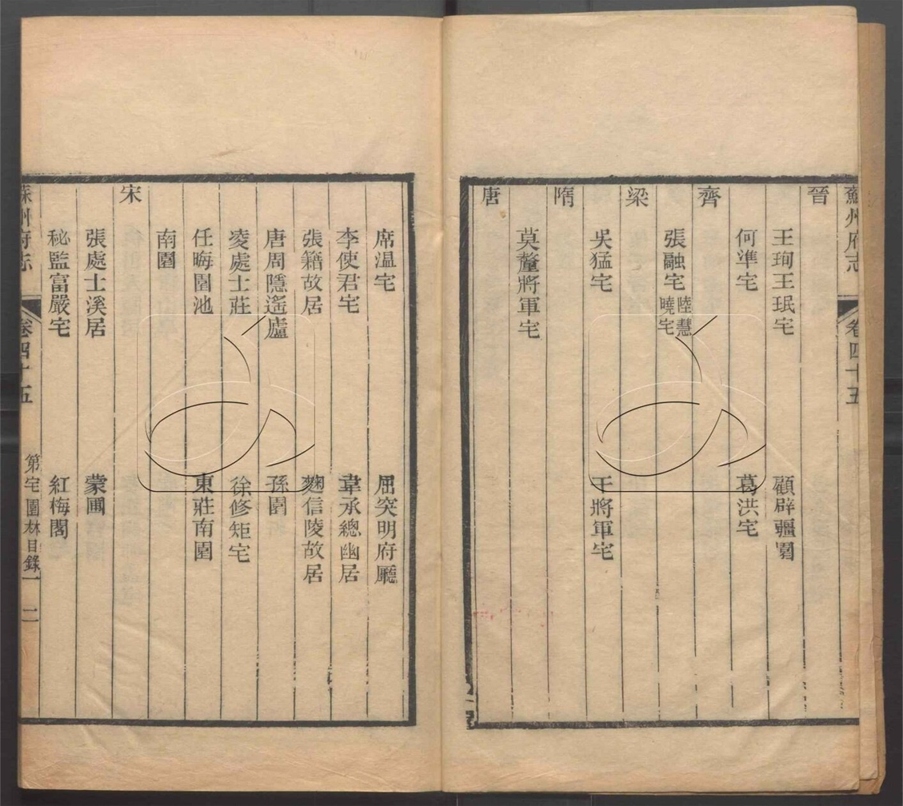 蘇州府志 卷四十五
晉
王珣王珉宅 顧辟疆園
何準宅 葛洪宅
齊
張融宅 陸慧曉宅
梁
吳猛宅 于將軍宅
隋
莫釐將軍宅
唐
席溫宅 屈突明府廳
李使君宅 韋承總幽居
張籍故居 麴信陵故居
唐周隱遙廬 孫園
凌處士莊 徐修矩宅
任晦園池 東莊南園
南園
宋
張處士溪居 蒙圃
秘監富嚴宅 紅梅閣
蘇州府志 卷四十五 第宅園林目錄一 一